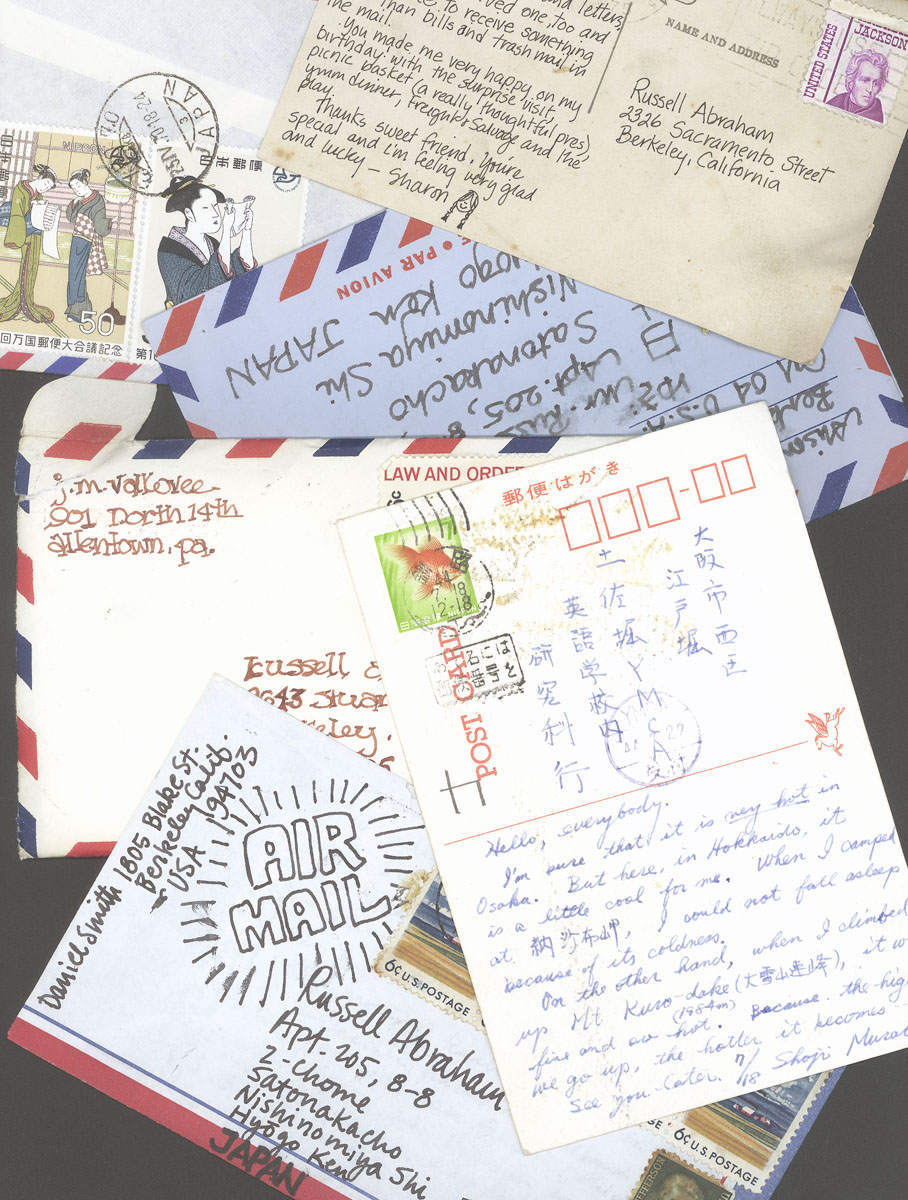 and letters,
ved one, too and
to receive something
than bills and trash mail in
the mail.
You made me very happy on my
birthday with the surprise visit,
picnic basket (a really thoughtful pres)
ymm dinner, Freight & Salvage and the
play.
Thanks sweet friend, you're
special and i'm feeling very glad
and lucky – Sharon
NAME AND ADDRESS
UNITED STATES
JACKSON
Russell Abraham
2326 Sacramento Street
Berkeley, California
JAPAN
NIPPON
日本郵便
50
回万国郵便大会議記念
第16
PAR AVION
Hyogo Ken JAPAN
Nishinomiya Shi
Satonakacho
Apt. 205, 8
U.S.A.
j.m. vallovee
901 north 14th
allentown, pa.
LAW AND ORDER
russell
2643 stuar
keley,
郵便はがき
POST CARD
44
7.18
12-18
大阪市西区
江戸堀
土佐堀YMCA
英語学校内
研究科行
Hello, everybody.
I'm sure that it is very hot in
Osaka. But here, in Hokkaido, it
is a little cool for me. When I camped
at 納沙布岬, I could not fall asleep
because of its coldness.
On the other hand, when I climbed
up Mt Kuro-dake (大雪山連峰), it w
(1984m)
fine and so hot. Because the hig
we go up, the hotter it becomes
See you later. 7/18 Shoji Murat
Daniel Smith 1805 Blake St.
Berkeley Calib.
USA 94703
AIR
MAIL
6¢ U.S. POSTAGE
Russell Abraham
Apt. 205, 8-8
2-chome
Satonakacho
Nishinomiya Shi
Hyogo Ken
JAPAN
6¢ U.S. POSTAGE
JEFFERSON